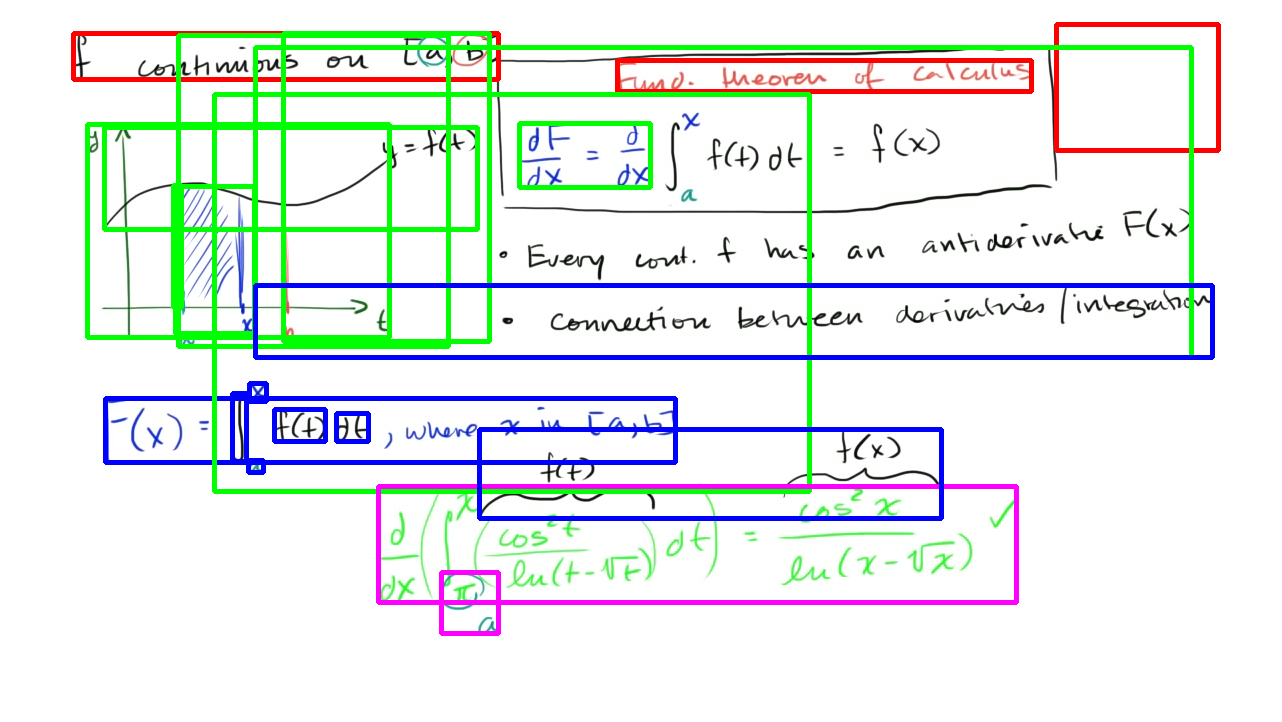 f continuous on [a, b]
Fund. theorem of calculus
y
y = f(t)
dF/dx = d/dx ∫_a^x f(t) dt = f(x)
• Every cont. f has an antiderivative F(x)
x
t
• Connection between derivatives/integration
F(x) = ∫_a^x f(t) dt, where x in [a, b]
f(t)
f(x)
d/dx (∫_π^x (cos²t / ln(t-√t)) dt) = cos²x / ln(x-√x) ✓
a